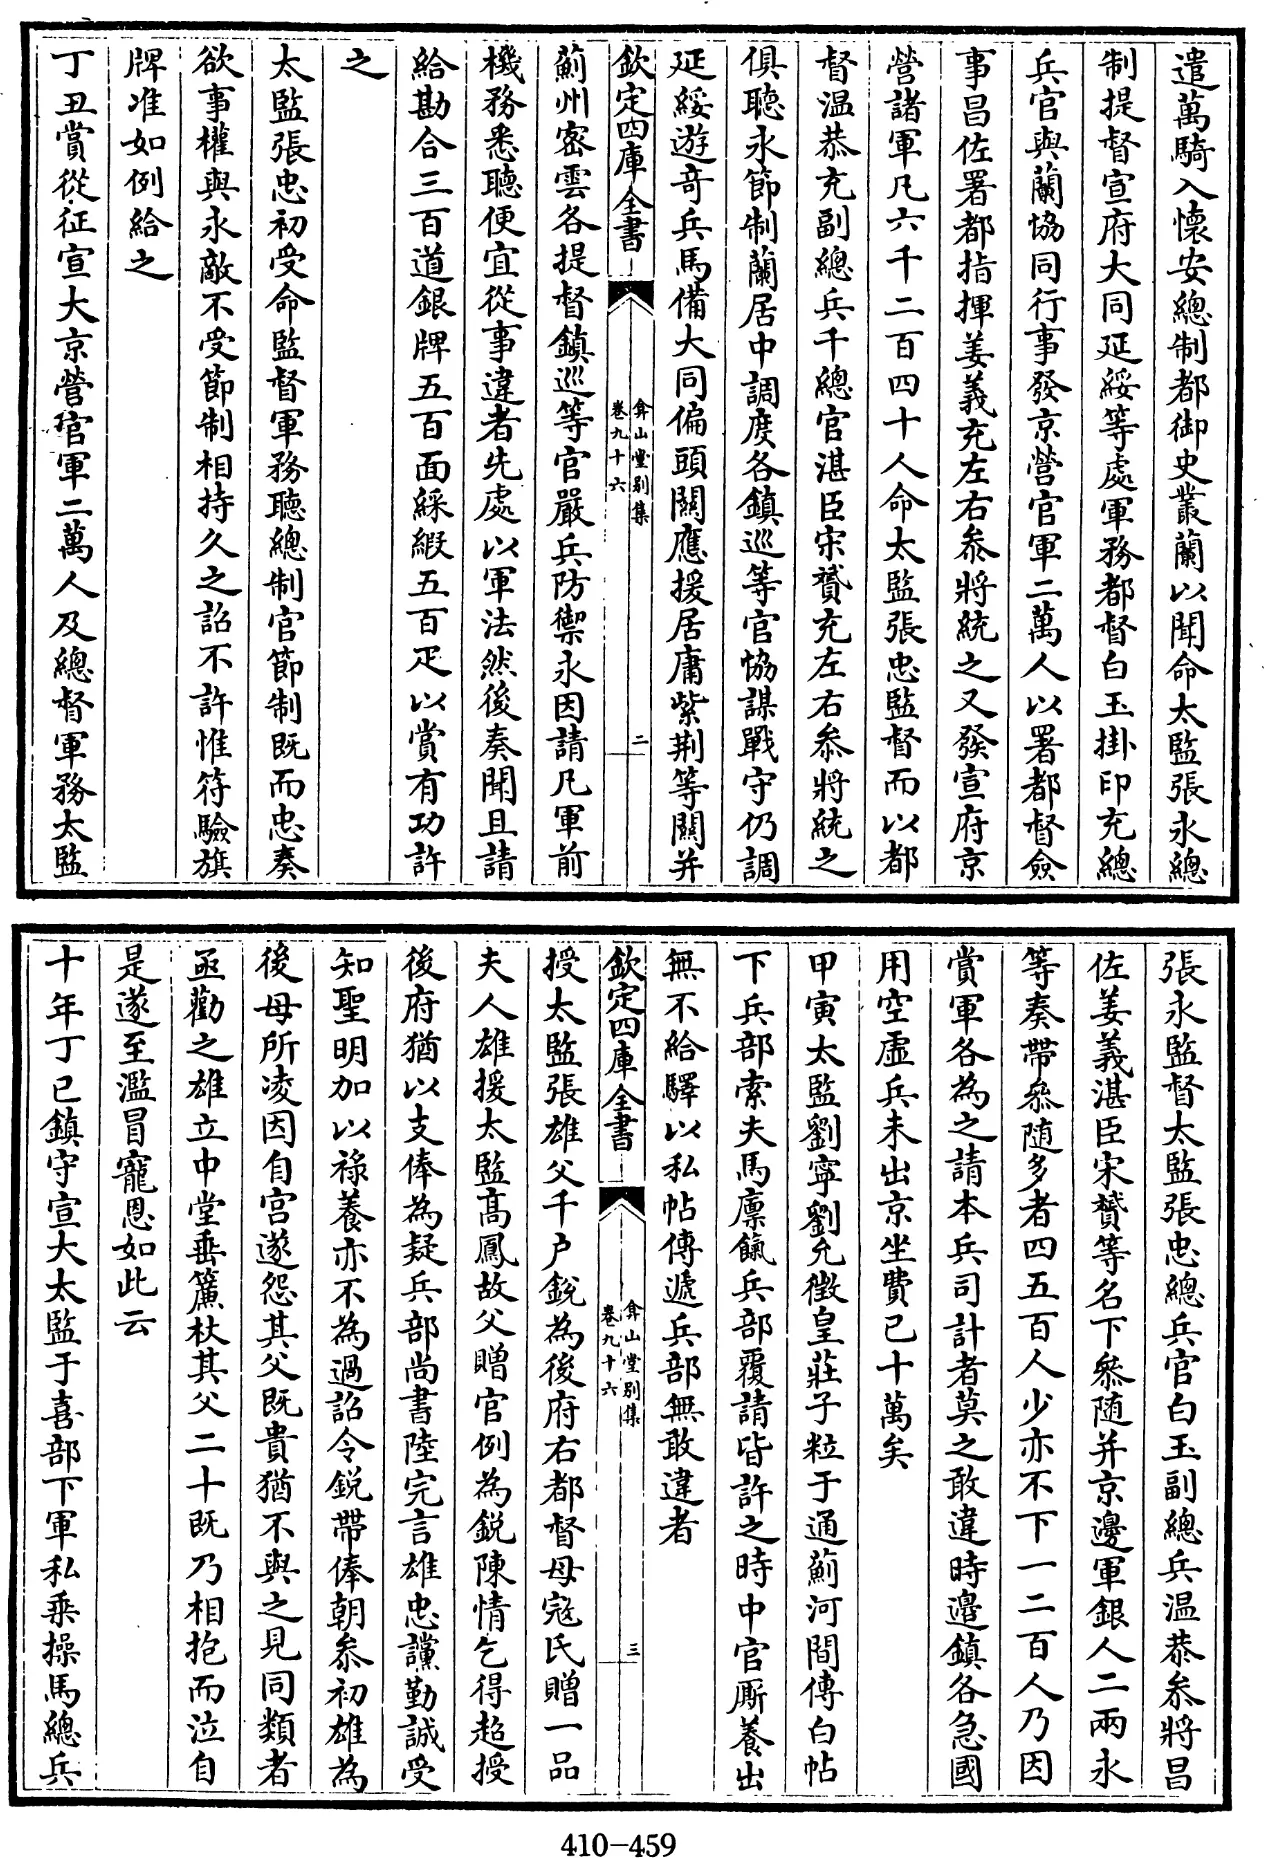 遣萬騎入懷安總制都御史叢蘭以聞命太監張永總
制提督宣府大同延綏等處軍務都督白玉掛印充總
兵官與蘭協同行事發京營官軍二萬人以署都督僉
事昌佐署都指揮姜義充左右叅將統之又發宣府京
營諸軍凡六千二百四十人命太監張忠監督而以都
督温恭充副總兵千總官湛臣宋贇充左右叅將統之
俱聽永節制蘭居中調度各鎮巡等官協謀戰守仍調
延綏遊竒兵馬備大同偏頭關應援居庸紫荆等關并
欽定四庫全書
弇山堂别集
卷九十六
二
薊州密雲各提督鎮巡等官嚴兵防禦永因請凡軍前
機務悉聽便宜從事違者先處以軍法然後奏聞且請
給勘合三百道銀牌五百面綵緞五百疋以賞有功許
之
太監張忠初受命監督軍務聽總制官節制既而忠奏
欲事權與永敵不受節制相持久之詔不許惟符驗旗
牌准如例給之
丁丑賞從征宣大京營官軍二萬人及總督軍務太監
張永監督太監張忠總兵官白玉副總兵温恭叅將昌
佐姜義湛臣宋贇等名下叅随并京邊軍銀人二兩永
等奏帶叅随多者四五百人少亦不下一二百人乃因
賞軍各為之請本兵司計者莫之敢違時邊鎮各急國
用空虛兵未出京坐費已十萬矣
甲寅太監劉寧劉允徵皇莊子粒于通薊河間傳白帖
下兵部索夫馬廪餼兵部覆請皆許之時中官厮養出
無不給驛以私帖傳遞兵部無敢違者
欽定四庫全書
弇山堂别集
卷九十六
三
授太監張雄父千户鋭為後府右都督母寇氏贈一品
夫人雄援太監高鳳故父贈官例為鋭陳情乞得超授
後府猶以支俸為疑兵部尚書陸完言雄忠讜勤誠受
知聖明加以祿養亦不為過詔令鋭帶俸朝叅初雄為
後母所凌因自宫遂怨其父既貴猶不與之見同類者
亟勸之雄立中堂垂簾杖其父二十既乃相抱而泣自
是遂至濫冒寵恩如此云
十年丁巳鎮守宣大太監于喜部下軍私乘操馬總兵
410-459